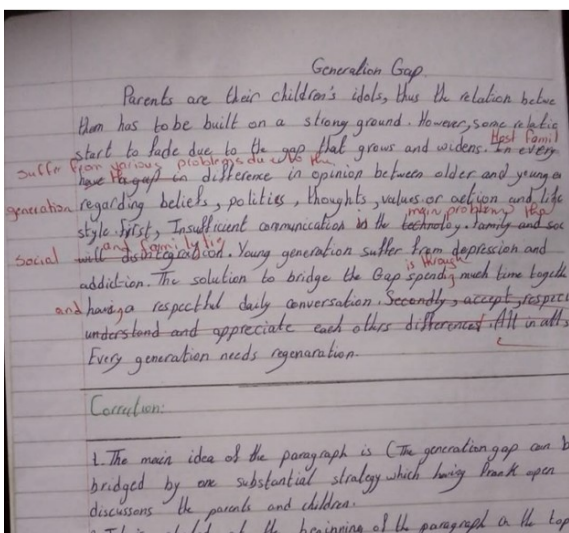 Generation Gap.
Parents are their children's idols, thus the relation betwe
them has to be built on a strong ground. However, some relatio
start to fade due to the gap that grows and widens. In every
Most famil
suffer from various problems due to the
have the gap in difference in opinion between older and young
generation regarding beliefs, politics, thoughts, values or action and life
style. First, Insufficient communication is the technology. Family and soc
main problem
social will disintegration. Young generation suffer from depression and
and family tie
addiction. The solution to bridge the Gap spending much time togeth
is through
and having a respectful daily conversation. Secondly, accept, respect
understand and appreciate each others differences. All in all,
Every generation needs regenaration.
Correction:
1. The main idea of the paragraph is (The generation gap can b
bridged by one substantial strategy which having frank open
discussons the parents and children.
at the beginning of the paragraph in the top